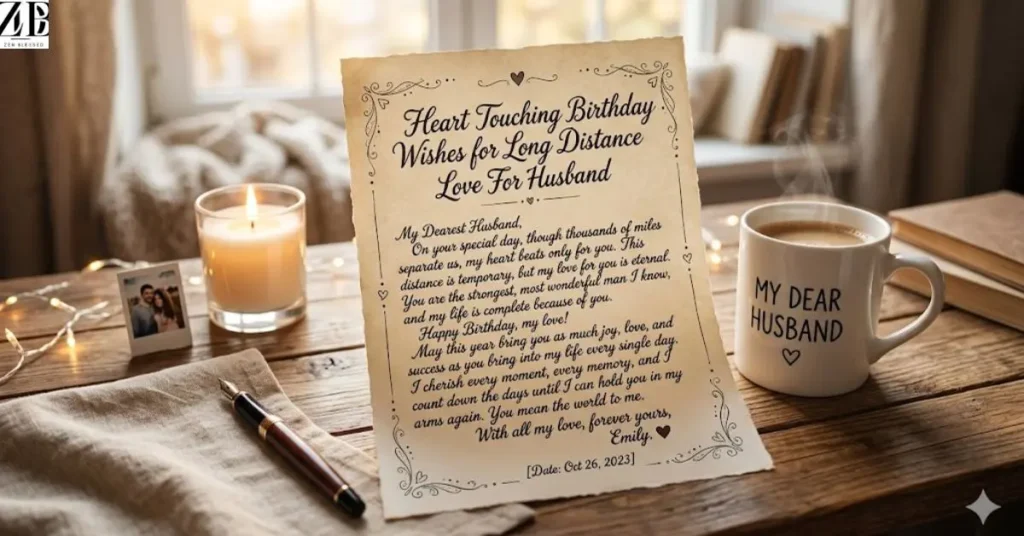 Heart Touching Birthday
Wishes for Long Distance
Love For Husband
My Dearest Husband,
On your special day, though thousands of miles
separate us, my heart beats only for you. This
distance is temporary, but my love for you is eternal.
You are the strongest, most wonderful man I know,
and my life is complete because of you.
Happy Birthday, my love!
May this year bring you as much joy, love, and
success as you bring into my life every single day.
I cherish every moment, every memory, and I
count down the days until I can hold you in my
arms again. You mean the world to me.
With all my love, forever yours,
Emily.
[Date: Oct 26, 2023]
MY DEAR
HUSBAND